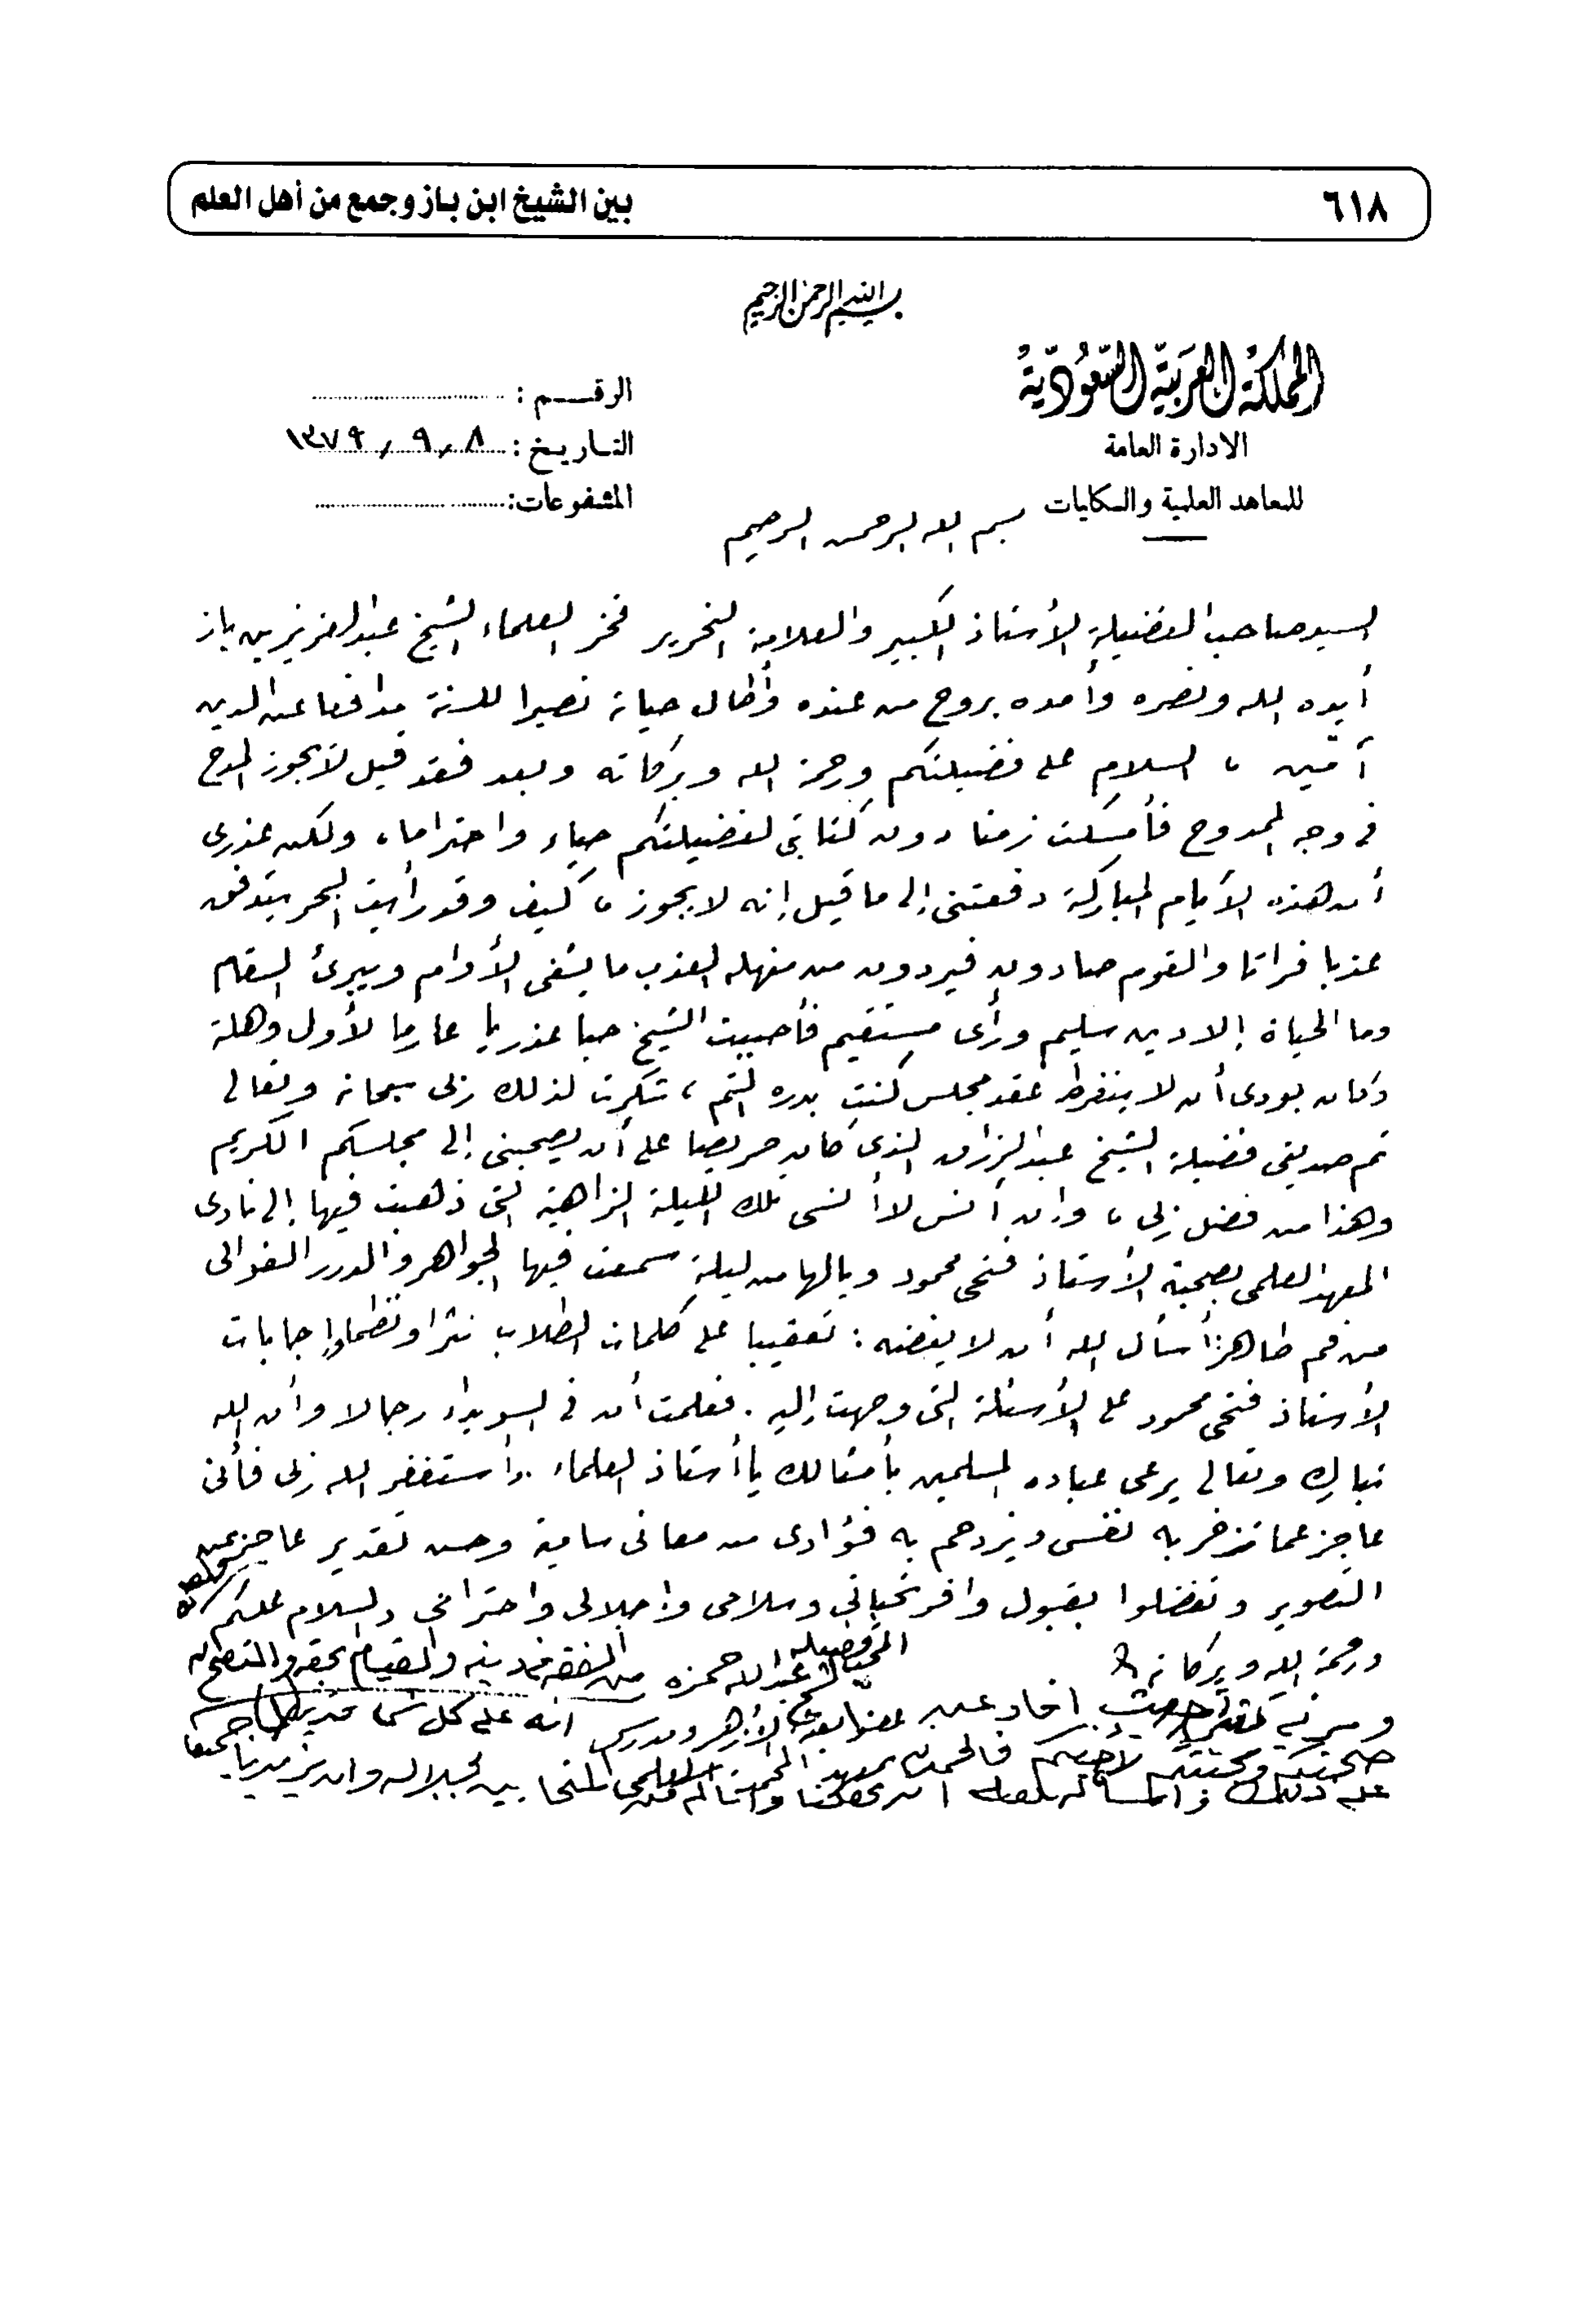 ٦١٨
بين الشيخ ابن باز وجمع من أهل العلم
بسم الله الرحمن الرحيم
المملكة العربية السعودية
الادارة العامة
للمعاهد العلمية والكليات
الرقم :
التاريخ : ٨ / ٩ / ١٣٧٩
المشفوعات :
بسم الله الرحمن الرحيم
السيد صاحب الفضيلة الأستاذ الكبير والعلامة النحرير فخر العلماء الشيخ عبد العزيز بن باز
أيده الله ونصره وأمده بروح من عنده وأطال حياته نصيرا للسنة مدافعا عن الدين
آمين ، السلام على فضيلتكم ورحمة الله وبركاته وبعد فقد قيل لا يجوز المدح
في وجه الممدوح فأمسكت زمنا دون كتابتى لفضيلتكم حياء واحتراما ، ولكن عذرى
أن هذه الأيام المباركة دفعتنى إلى ما قيل إنه لا يجوز ، كيف وقد رأيت البحر يتدفق
عذبا فراتا والقوم صادون فيردون من منهله العذب ما يشفى الأوام ويبرئ السقام
وما الحياة إلا دين سليم ورأى مستقيم فأحببت الشيخ حبا عذريا عارما لأول وهلة
وكان بودى أن لا ينفرط عقد مجلس كنت بدره التم ، شكرت لذلك ربى سبحانه وتعالى
ثم صديقى فضيلة الشيخ عبد الرزاق الذى كان حريصا على أن يصحبنى إلى مجلسكم الكريم
وهذا من فضل ربى ، وإن أنس لا أنسى تلك الليلة الزاهية التى ذهبت فيها إلى نادى
المعهد العلمى بصحبة الأستاذ فتحى محمود ويالها من ليلة سمعت فيها الجواهر والدرر الغوالى
من فم طاهر أسأل الله أن لا يفضه : تعقيبا على كلمات الطلاب نثرا ونظما وإجابات
الأستاذ فتحى محمود على الأسئلة التى وجهت إليه . فعلمت أن فى السويداء رجالا وأن الله
تبارك وتعالى يرعى عباده المسلمين بأمثالك يا أستاذ العلماء . وأستغفر الله ربى فأنى
عاجز عما تزخر به نفسى ويزدحم به فؤادى من معانى سامية وحسن تقدير عاجز عن
التصوير وتفضلوا بقبول وافر تحياتى وسلامى وإجلالى واحترامى والسلام عليكم
ورحمة الله وبركاته
فضيلة الشيخ عبد الله حمزه من الفقه في دينه والقيام بحقه والنصح له
وسرني أفاد عن عضو بعثة الأزهر ومدرس انه على كل شئ قدير
صحتكم ومحبتكم لأخيكم فالحمد لله بمعهد العلمى المتحابين بجلاله وان يزيدنا جميعا
على ذلك